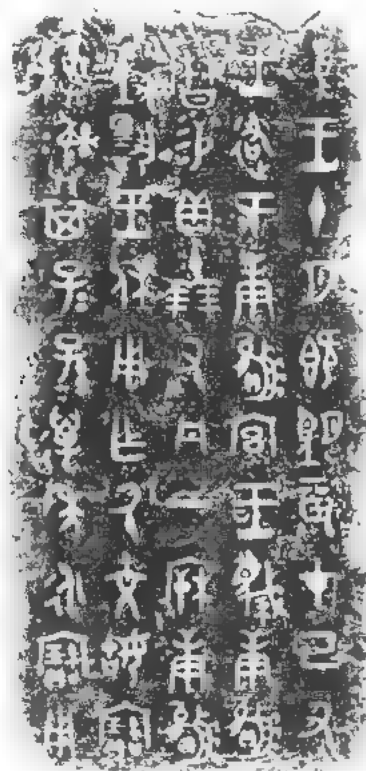 隹王十月既望辰才己丑
王逄于庚嬴宮王蔑庚嬴
曆易貝十朋又丹一㭒庚嬴
對揚王休用乍氒文姑寶
尊彝其子子孫孫萬年永寶用